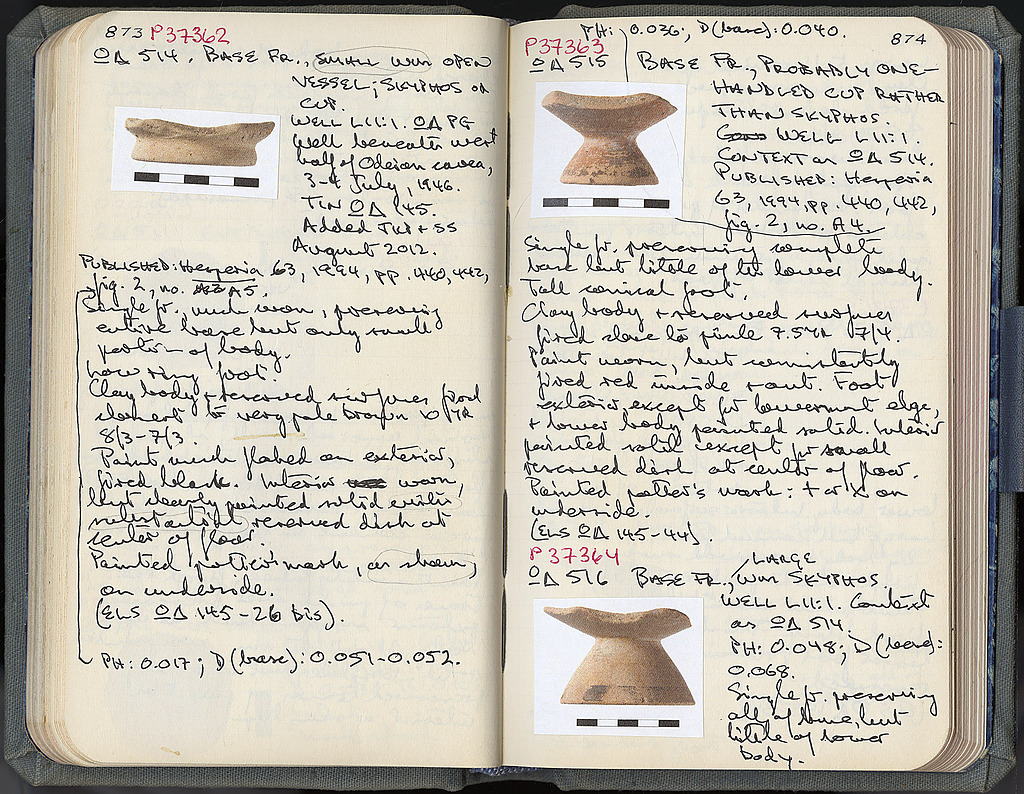 873 P37362
ΩΔ 514. BASE FR., SMALL WM OPEN
VESSEL; SKYPHOS OR
CUP.
WELL L 11:1. ΩΔ PG
Well beneath west
half of Odeion cavea,
3-4 July, 1946.
TIN ΩΔ 145.
Added JKP + SS
August 2012.
PUBLISHED: Hesperia 63, 1994, pp. 440, 442,
fig. 2, no. A5.
Single fr., much worn, preserving
entire base but only small
portion of body.
Low ring foot.
Clay body + reserved surfaces fired
closest to very pale brown 10 YR
8/3-7/3.
Paint much flaked on exterior,
fired black. Interior worn,
but clearly painted solid
reserved disk at
center of floor.
Painted potter's mark, as shown,
on underside.
(ELS ΩΔ 145-26 bis).
PH: 0.017; D(base): 0.051-0.052.
874
PH: 0.036; D(base): 0.040.
P37363
ΩΔ 515 BASE FR., PROBABLY ONE-
HANDLED CUP RATHER
THAN SKYPHOS.
WELL L 11:1.
CONTEXT as ΩΔ 514.
PUBLISHED: Hesperia
63, 1994, pp. 440, 442,
fig. 2, no. A4.
Single fr. preserving complete
base but little of the lower body.
Tall conical foot.
Clay body + reserved surfaces
fired close to pink 7.5YR 7/4.
Paint worn, but consistently
fired red inside + out. Foot
exterior, except for lowermost edge,
+ lower body painted solid. Interior
painted solid except for small
reserved disk at center of floor.
Painted potter's mark: + or X on
underside.
(ELS ΩΔ 145-44).
P37364
ΩΔ 516 BASE FR., LARGE WM SKYPHOS.
WELL L 11:1. Context
as ΩΔ 514.
PH: 0.048; D(base):
0.068.
Single fr. preserving
all of base, but
little of lower
body.